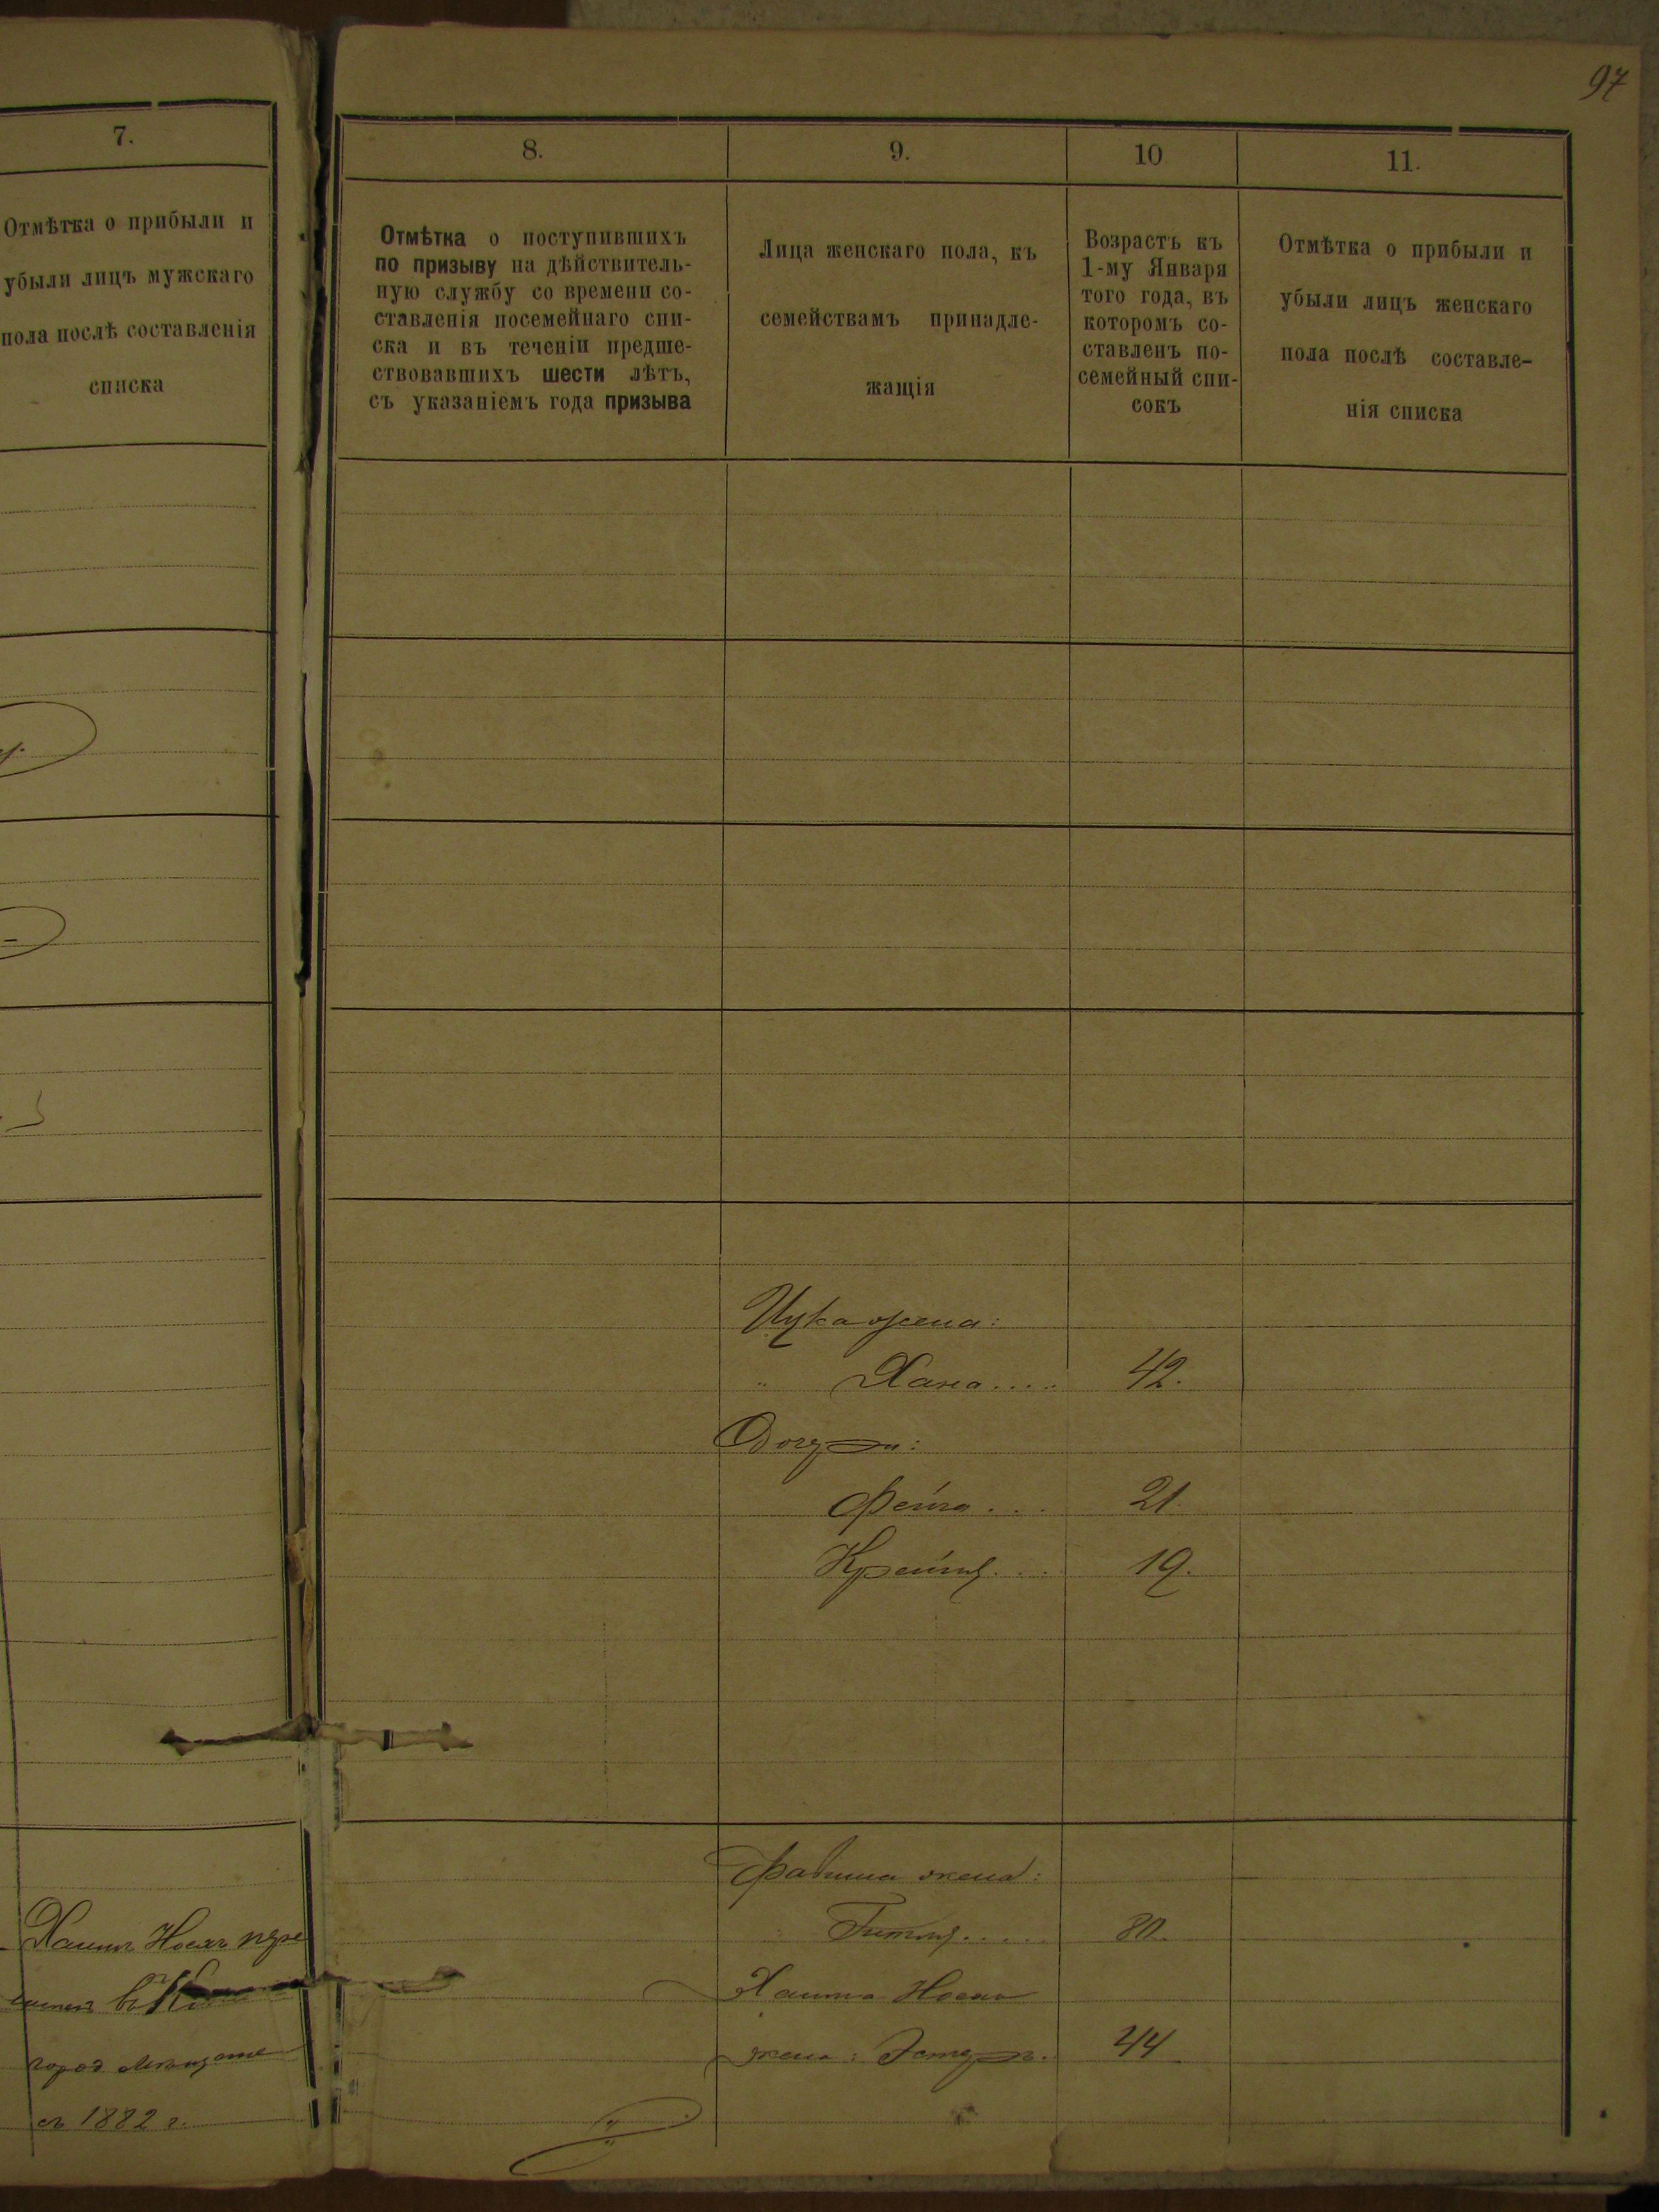 97
7.
Отмѣтка о прибыли и
убыли лицъ мужскаго
пола послѣ составленія
списка
Хаимъ Носахъ пере
въ
город
съ 1882 г.
8.
9.
10
11.
Отмѣтка о поступившихъ
по призыву на дѣйствитель-
ную службу со времени со-
ставленія посемейнаго спи-
ска и въ теченіи предше-
ствовавшихъ шести лѣтъ,
съ указаніемъ года призыва
Лица женскаго пола, къ
семействамъ принадле-
жащія
Возрастъ къ
1-му Января
того года, въ
которомъ со-
ставленъ по-
семейный спи-
сокъ
Отмѣтка о прибыли и
убыли лицъ женскаго
пола послѣ составле-
нія списка
Ицка жена:
" Хана .... 42.
Дочери:
Фейга ... 21
Крейна ... 19.
жена:
.... 80.
Хаима Носах
жена: Эстеръ. 44